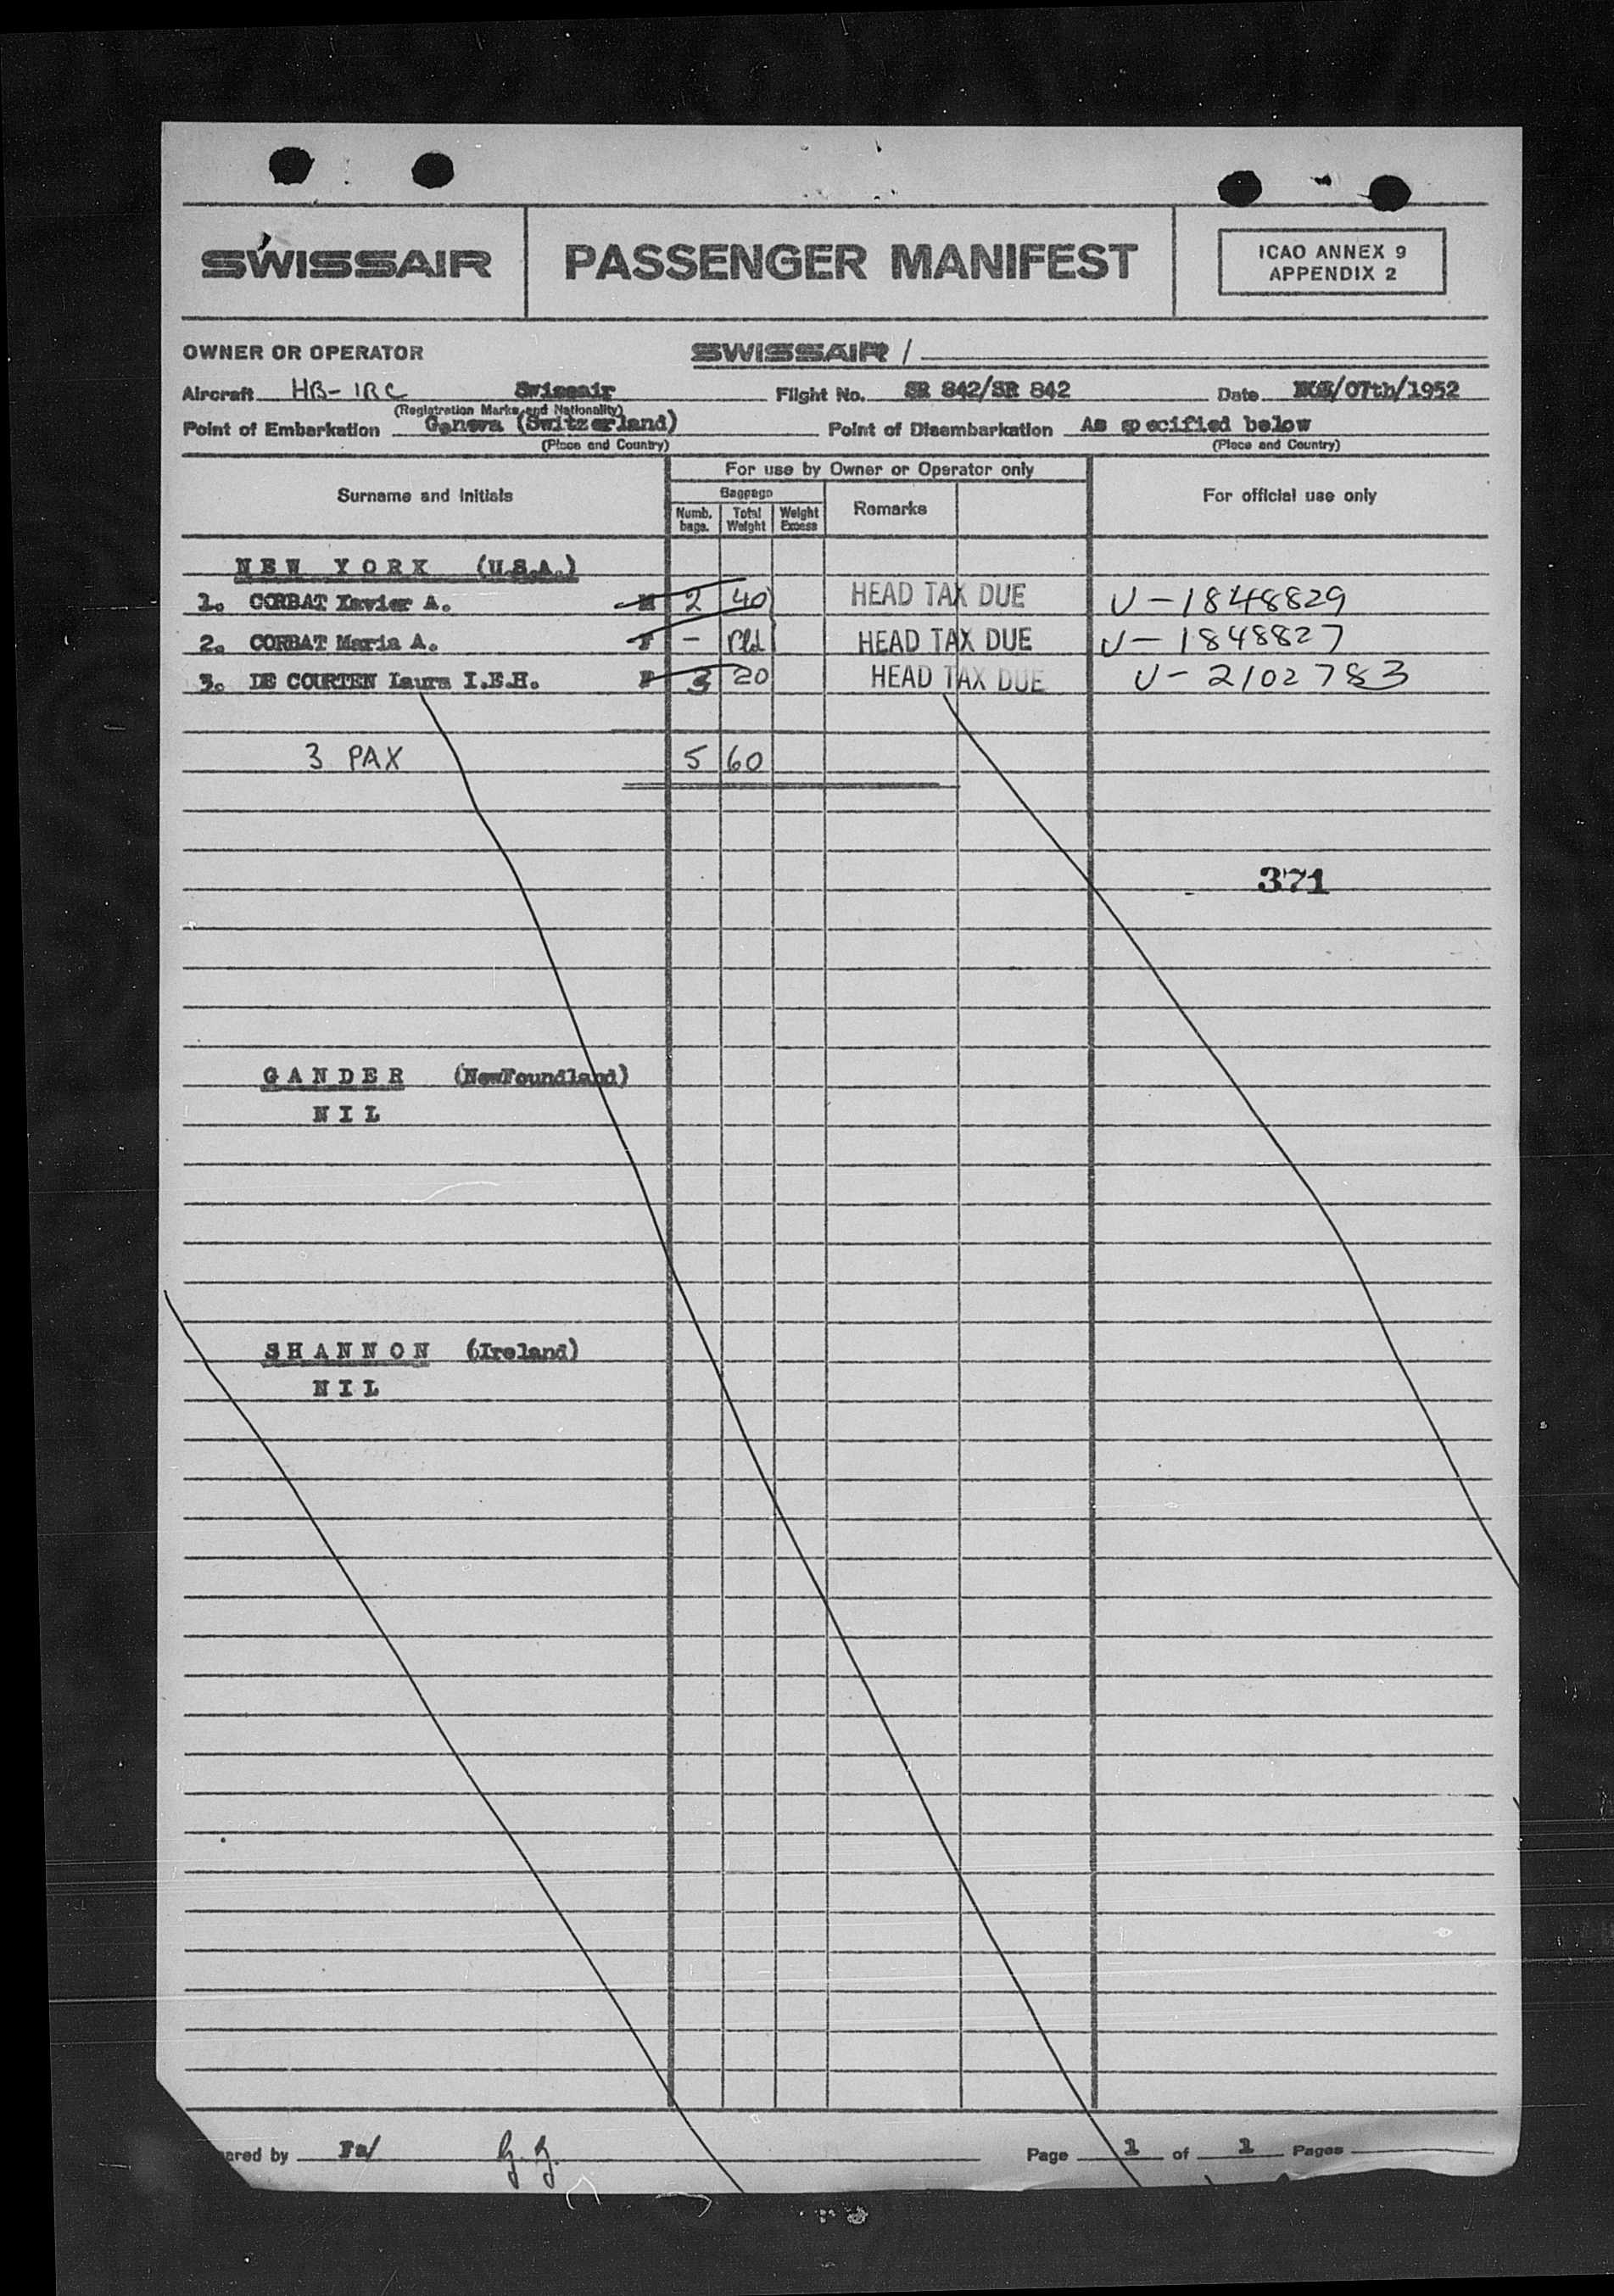 SWISSAIR
PASSENGER MANIFEST
ICAO ANNEX 9
APPENDIX 2
OWNER OR OPERATOR SWISSAIR /
Aircraft HB-IRC Swissair Flight No. SR 842/SR 842 Date /07th/1952
(Registration Marks and Nationality)
Point of Embarkation Geneva (Switzerland) Point of Disembarkation As specified below
(Place and Country) (Place and Country)
Surname and Initials
For use by Owner or Operator only
For official use only
Baggage
Numb. bags. Total Weight Weight Excess Remarks
NEW YORK (U.S.A.)
1. CORBAT Xavier A. M 2 40 HEAD TAX DUE U-1848829
2. CORBAT Maria A. F - Pld HEAD TAX DUE U-1848827
3. DE COURTEN Laura I.E.H. F 3 20 HEAD TAX DUE U-2102783
3 PAX 5 60
371
GANDER (NewFoundland)
NIL
SHANNON (Ireland)
NIL
ared by Fa/ Page 1 of 1 Pages